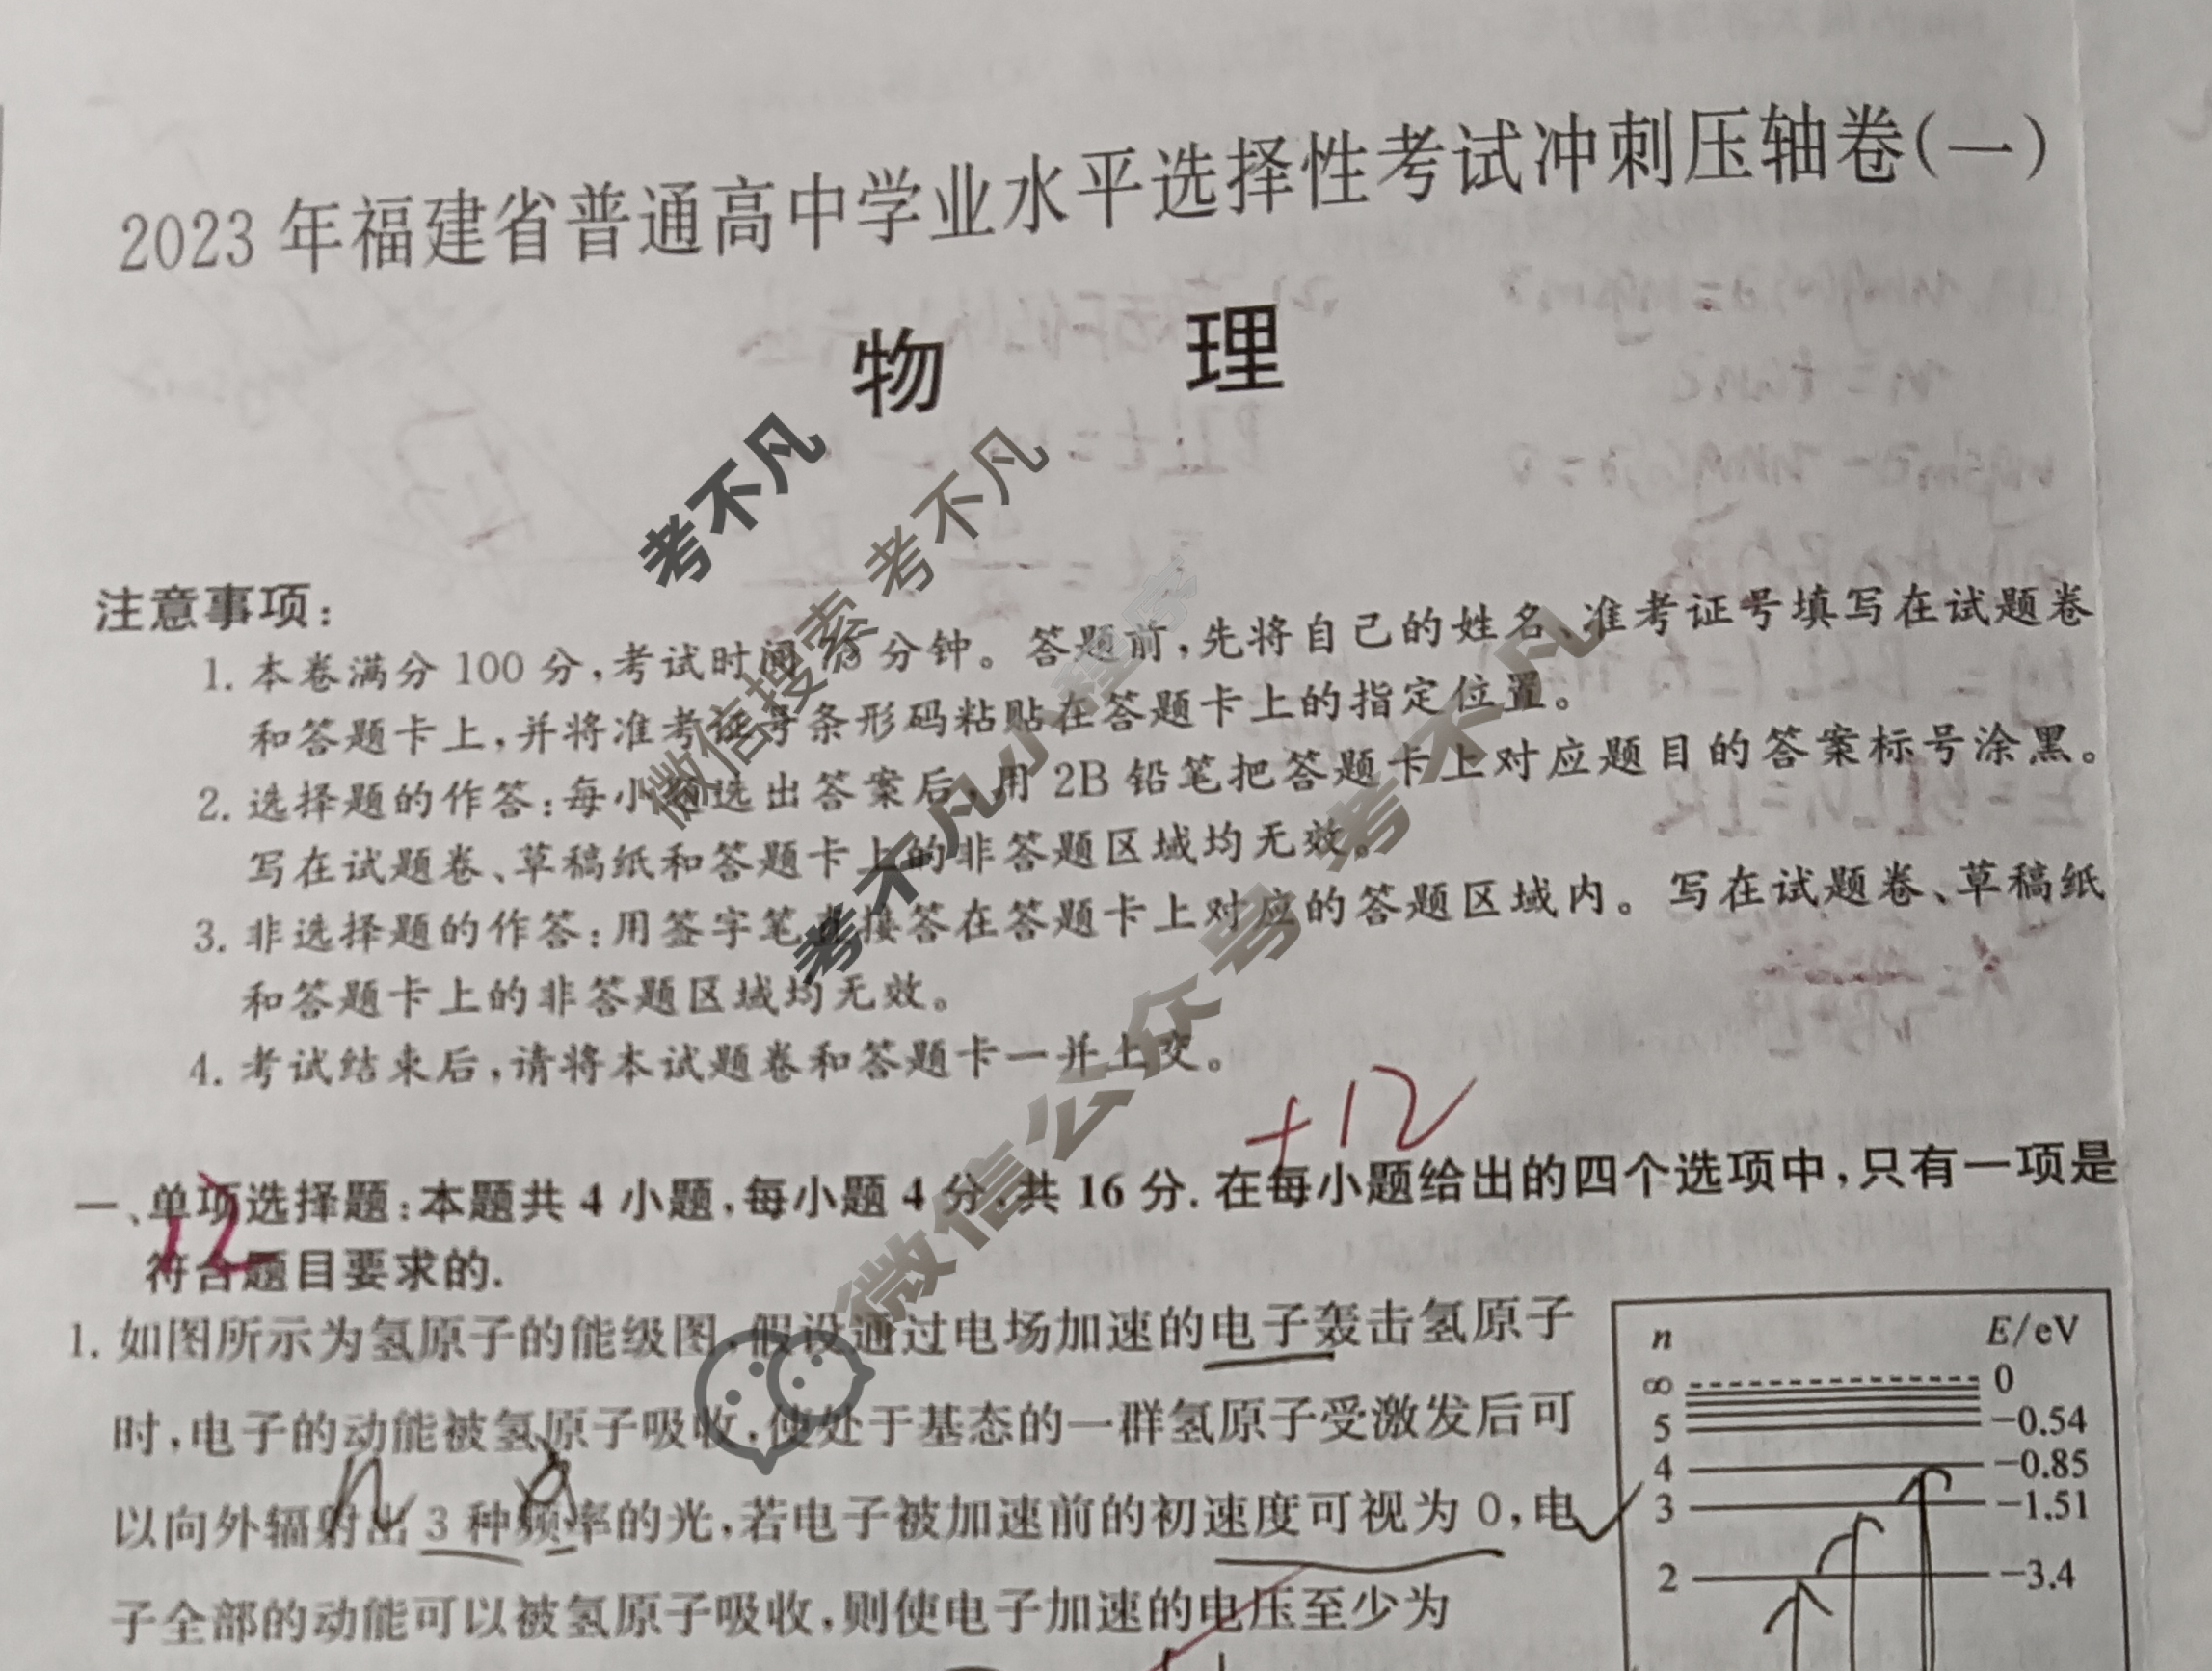 2023年福建省普通高中学业水平选择性考试冲刺压轴卷(一)
物 理
考不凡
微信搜索 考不凡
考不凡小程序
微信公众号 考不凡
注意事项:
1. 本卷满分 100 分,考试时间 分钟。答题前,先将自己的姓名、准考证号填写在试题卷
和答题卡上,并将准考证号条形码粘贴在答题卡上的指定位置。
2. 选择题的作答:每小题选出答案后,用 2B 铅笔把答题卡上对应题目的答案标号涂黑。
写在试题卷、草稿纸和答题卡上的非答题区域均无效。
3. 非选择题的作答:用签字笔直接答在答题卡上对应的答题区域内。写在试题卷、草稿纸
和答题卡上的非答题区域均无效。
4. 考试结束后,请将本试题卷和答题卡一并上交。
+12
12
一、单项选择题:本题共 4 小题,每小题 4 分,共 16 分. 在每小题给出的四个选项中,只有一项是
符合题目要求的.
1. 如图所示为氢原子的能级图,假设通过电场加速的电子轰击氢原子
时,电子的动能被氢原子吸收,使处于基态的一群氢原子受激发后可
以向外辐射出 3 种频率的光,若电子被加速前的初速度可视为 0,电
子全部的动能可以被氢原子吸收,则使电子加速的电压至少为
n E/eV
∞ 0
5 −0.54
4 −0.85
3 −1.51
2 −3.4